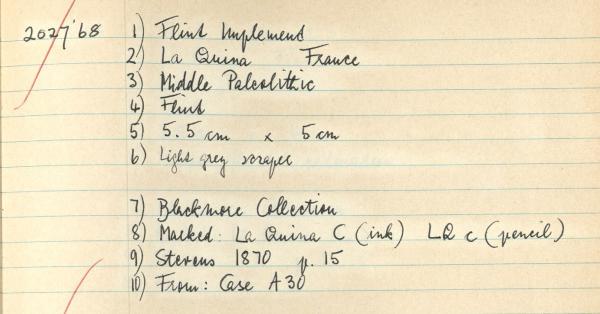 2027'68 1) Flint Implement
2) La Quina France
3) Middle Paleolithic
4) Flint
5) 5.5 cm x 5 cm
6) Light grey scraper
7) Blackmore Collection
8) Marked: La Quina C (ink) LQ c (pencil)
9) Stevens 1870 p. 15
10) From: Case A 30